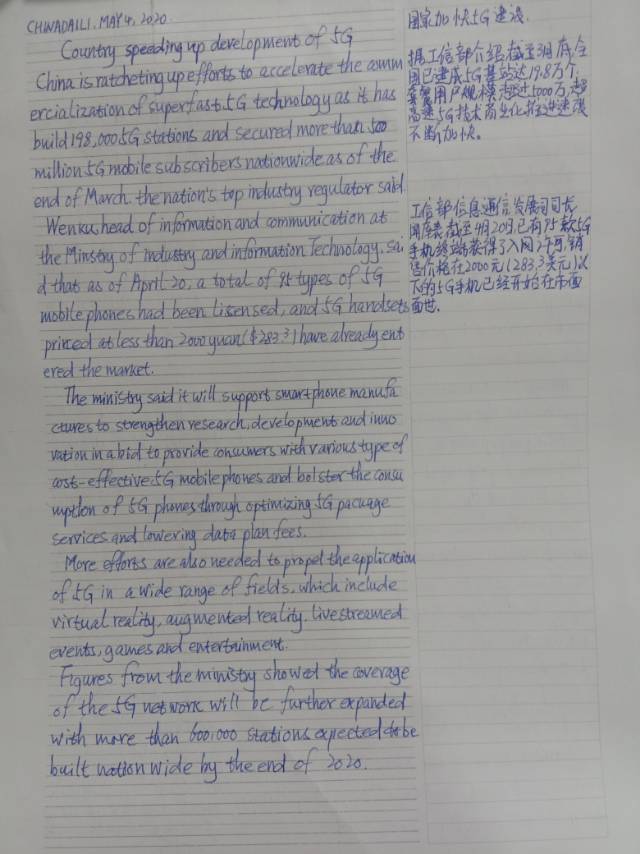 CHINADAILI. MAY 4, 2020.
Country speeding up development of 5G
China is ratcheting up efforts to accelerate the comm
ercialization of superfast 5G technology as it has
build 198,000 5G stations and secured more than 500
million 5G mobile subscribers nationwide as of the
end of March. the nation's top industry regulator said.
Wenku, head of information and communication at
the Minstry of industry and information Technology, sai
d that as of April 20, a total of 95 types of 5G
mobile phones had been lisensed, and 5G handsets
princed at less than 2000 yuan ($283.3) have already ent
ered the market.
The ministry said it will support smartphone manufa
ctures to strengthen research, development and inno
vation in a bid to provide consumers with various type of
cost-effective 5G mobile phones and bolster the consu
mption of 5G phones through optimizing 5G package
services and lowering data plan fees.
More efforts are also needed to propel the application
of 5G in a wide range of fields, which include
virtual reality, augmented reality, livestreamed
events, games and entertainment.
Figures from the ministry showed the coverage
of the 5G network will be further expanded
with more than 600,000 stations expected to be
built nation wide by the end of 2020.
国家加快5G建设.
据工信部介绍截至3月底全
国已建成5G基站达19.8万个,
套餐用户规模超过5000万,超
高速5G技术商业化推进速度
不断加快。
工信部信息通信发展司司长
闻库表截至4月20日,已有95款5G
手机终端获得了入网许可,销
售价格在2000元(283.3美元)以
下的5G手机已经开始在市面
面世.